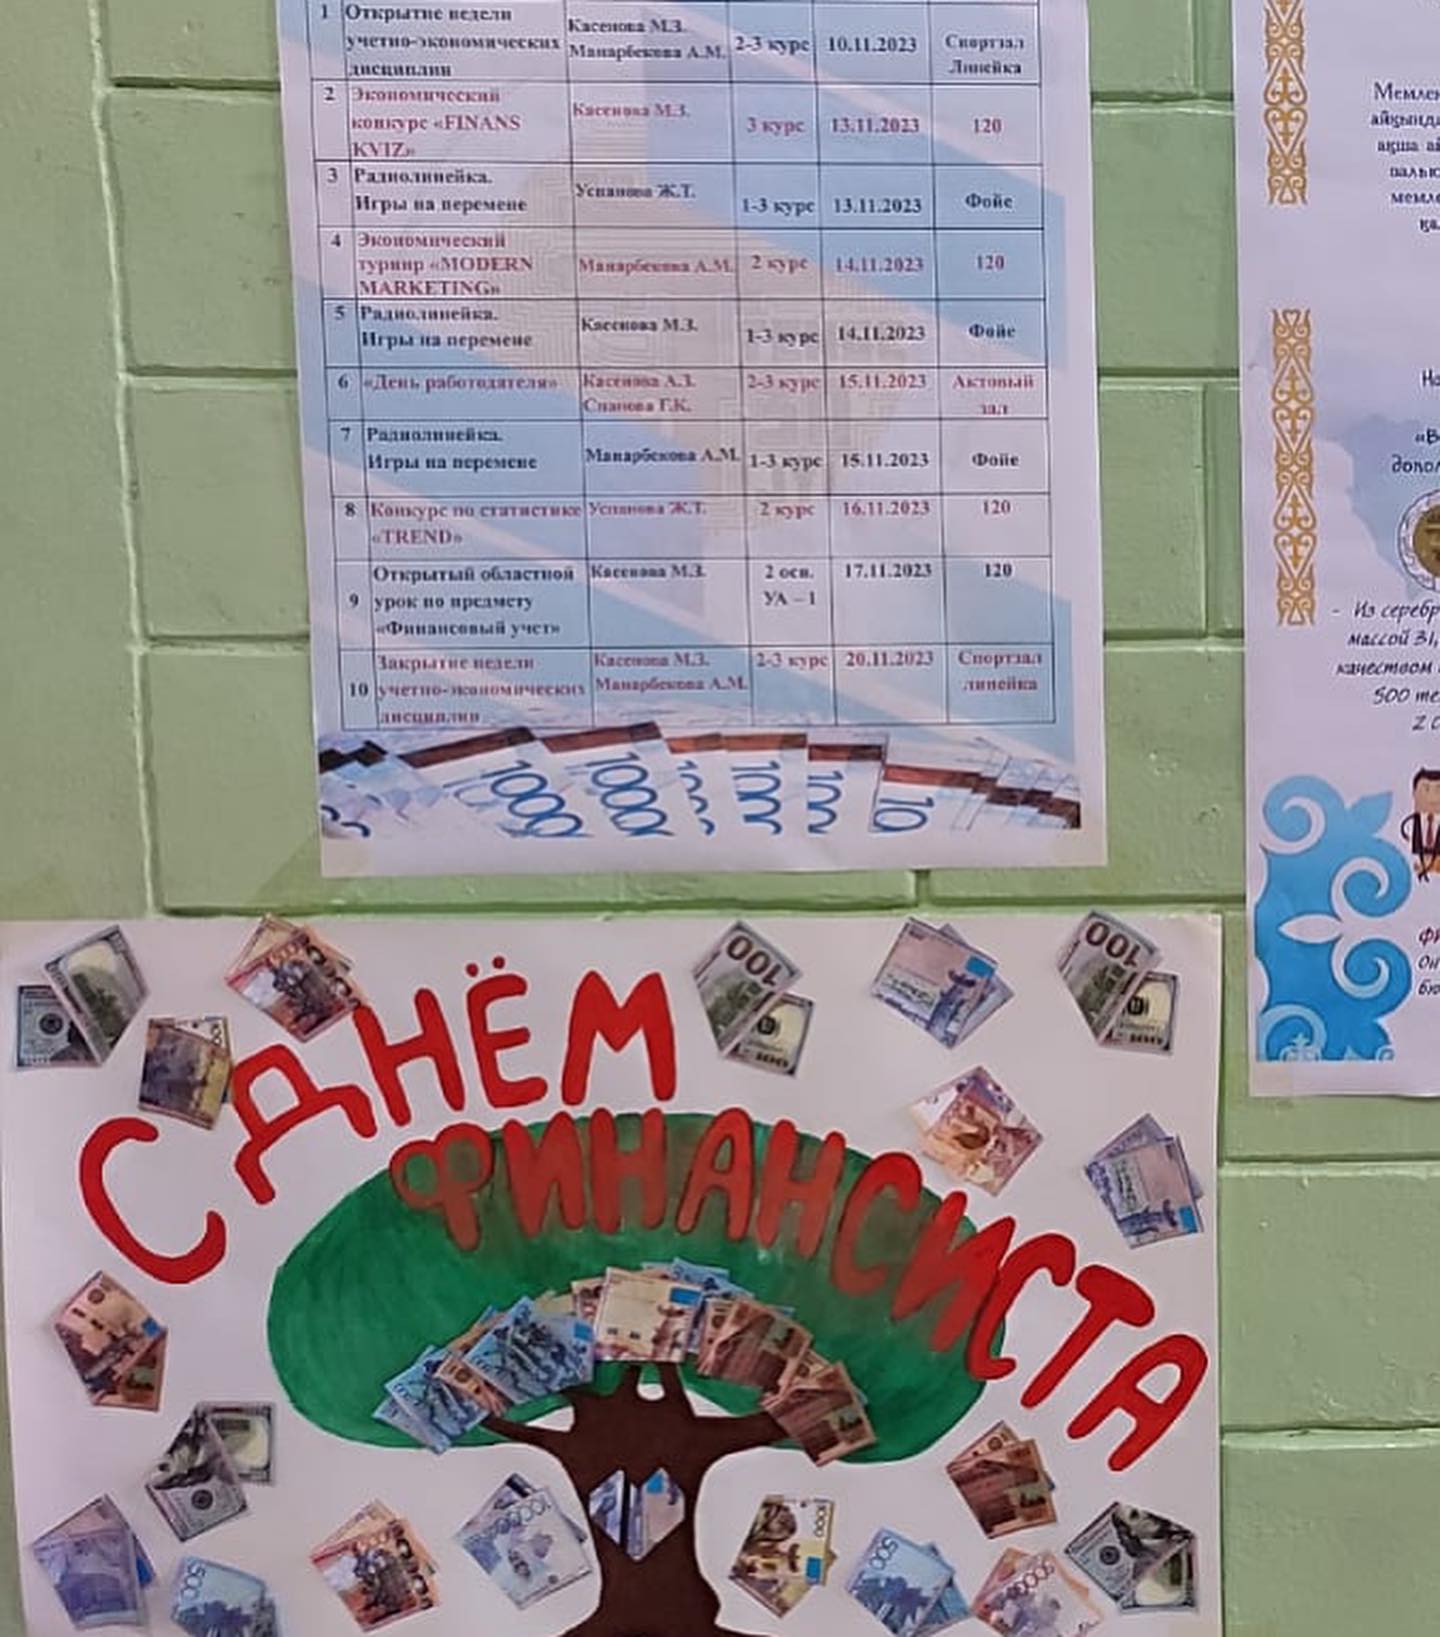 1 Открытие недели
учетно-экономических
дисциплин
Касенова М.З.
Манарбекова А.М.
2-3 курс
10.11.2023
Спортзал
Линейка
2 Экономический
конкурс «FINANS
KVIZ»
Касенова М.З.
3 курс
13.11.2023
120
3 Радиолинейка.
Игры на перемене
Успанова Ж.Т.
1-3 курс
13.11.2023
Фойе
4 Экономический
турнир «MODERN
MARKETING»
Манарбекова А.М.
2 курс
14.11.2023
120
5 Радиолинейка.
Игры на перемене
Касенова М.З.
1-3 курс
14.11.2023
Фойе
6 «День работодателя»
Касенова А.З.
Спанова Г.К.
2-3 курс
15.11.2023
Актовый
зал
7 Радиолинейка.
Игры на перемене
Манарбекова А.М.
1-3 курс
15.11.2023
Фойе
8 Конкурс по статистике
«TREND»
Успанова Ж.Т.
2 курс
16.11.2023
120
9 Открытый областной
урок по предмету
«Финансовый учет»
Касенова М.З.
2 осн.
УА – 1
17.11.2023
120
10 Закрытие недели
учетно-экономических
дисциплин
Касенова М.З.
Манарбекова А.М.
2-3 курс
20.11.2023
Спортзал
линейка
С ДНЁМ
ФИНАНСИСТА
- Из серебр
массой 31,
качеством
500 те